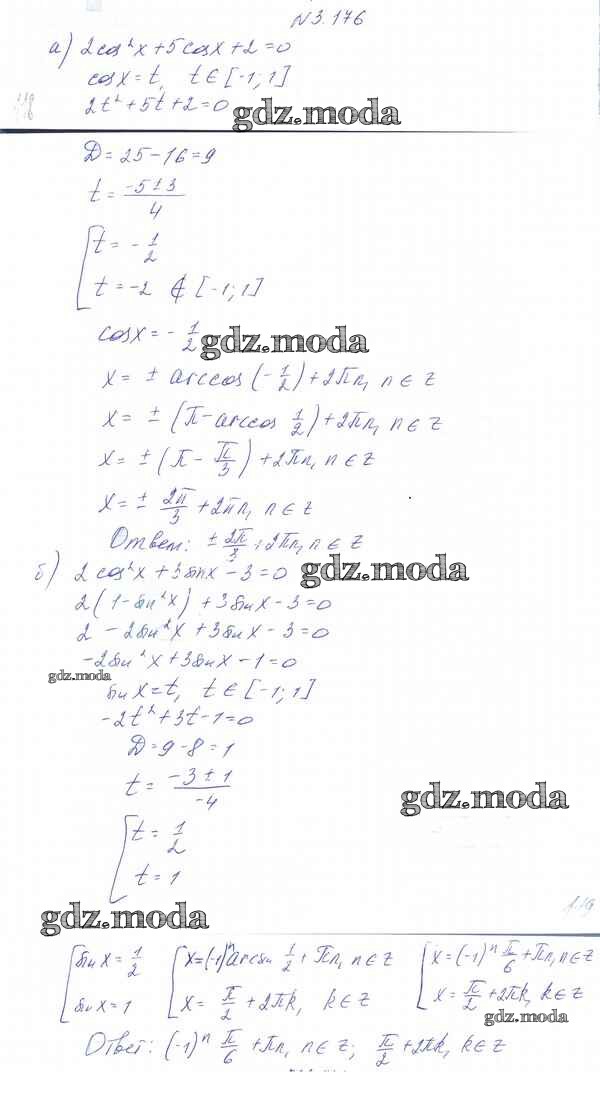 N3.176
а) 2cos²x + 5cosx + 2 = 0
cosx = t, t ∈ [-1; 1]
2t² + 5t + 2 = 0
gdz.moda
D = 25 - 16 = 9
t = (-5 ± 3)/4
[ t = -1/2
t = -2 ∉ [-1; 1]
cosx = -1/2
gdz.moda
x = ± arccos(-1/2) + 2πn, n ∈ z
x = ± (π - arccos 1/2) + 2πn, n ∈ z
x = ± (π - π/3) + 2πn, n ∈ z
x = ± 2π/3 + 2πn, n ∈ z
Ответ: ± 2π/3 + 2πn, n ∈ z
б) 2cos²x + 3sinx - 3 = 0
gdz.moda
2(1 - sin²x) + 3sinx - 3 = 0
2 - 2sin²x + 3sinx - 3 = 0
-2sin²x + 3sinx - 1 = 0
gdz.moda
sinx = t, t ∈ [-1; 1]
-2t² + 3t - 1 = 0
D = 9 - 8 = 1
t = (-3 ± 1)/-4
gdz.moda
[ t = 1/2
t = 1
gdz.moda
[ sinx = 1/2 [ x = (-1)ⁿ arcsin 1/2 + πn, n ∈ z [ x = (-1)ⁿ π/6 + πn, n ∈ z
sinx = 1 x = π/2 + 2πk, k ∈ z x = π/2 + 2πk, k ∈ z
gdz.moda
Ответ: (-1)ⁿ π/6 + πn, n ∈ z; π/2 + 2πk, k ∈ z